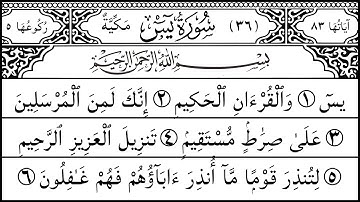 آيَاتُهَا ٨٣ سُورَةُ يٰسٓ مَكِّيَّةٌ (٣٦) رُكُوعُهَا ٥
بِسْمِ اللهِ الرَّحْمٰنِ الرَّحِيْمِ
يسٓ ١ وَالْقُرْءَانِ الْحَكِيمِ ٢ إِنَّكَ لَمِنَ الْمُرْسَلِينَ
٣ عَلَىٰ صِرَٰطٍ مُّسْتَقِيمٍ ٤ تَنزِيلَ الْعَزِيزِ الرَّحِيمِ
٥ لِتُنذِرَ قَوْمًا مَّآ أُنذِرَ ءَابَآؤُهُمْ فَهُمْ غَٰفِلُونَ ٦